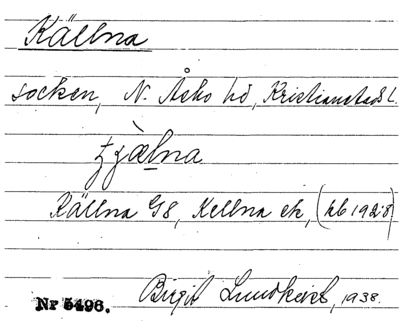 Källna
socken, N. Åsbo hd, Kristianstads l.
Källna G8, Kellna ek, (kb 1928)
Birgit Lundkvist, 1938.
Nr 5496.